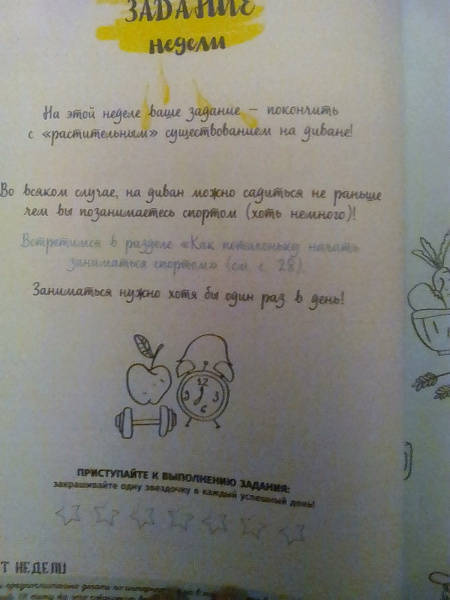 ЗАДАНИЕ
недели
На этой неделе ваше задание – покончить
с «растительным» существованием на диване!
Во всяком случае, на диван можно садиться не раньше
чем вы позанимаетесь спортом (хоть немного)!
Встретимся в разделе «Как потихоньку начать
заниматься спортом» (см. с. 28).
Заниматься нужно хотя бы один раз в день!
12
3
ПРИСТУПАЙТЕ К ВЫПОЛНЕНИЮ ЗАДАНИЯ:
закрашивайте одну звездочку в каждый успешный день!
Т НЕДЕЛИ